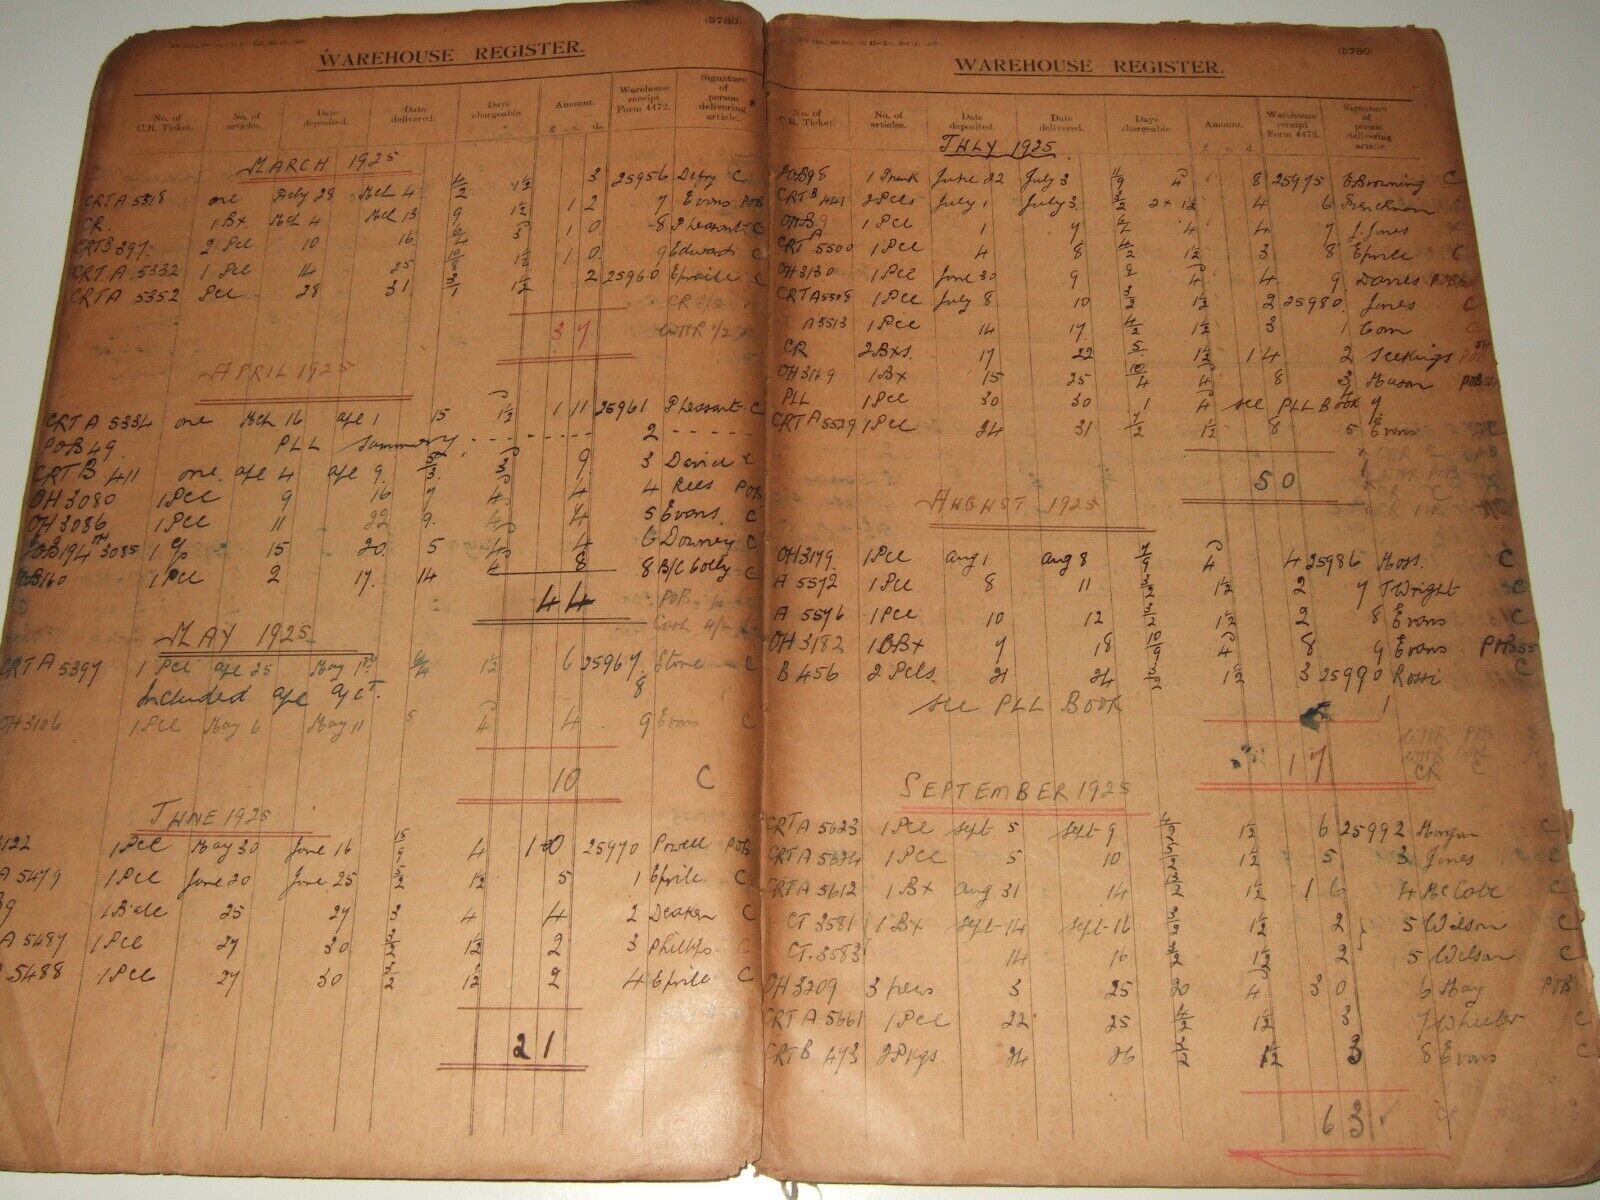 (5780)
WAREHOUSE REGISTER.
No. of C.R. Ticket. No. of articles. Date deposited. Date delivered. Days chargeable. Amount. Warehouse receipt Form 4472. Signature of person delivering article.
£ s d
MARCH 1925
CRTA 5318 one Feby 28 Mch 4 4/2 1½ 3 25956 C
CR. 1 Bx Mch 4 Mch 13 9 1½ 1 2 7 Evans POB
CRTB 397 2 Pcl 10 16 6/4 3 1 0 8 Pheasant C
CRTA 5332 1 Pcl 14 25 10/9 1½ 1 0 9 Edwards C
CRTA 5352 Pcl 28 31 3/1 1½ 2 25960 Eprile C
3 7
APRIL 1925
CRTA 5334 one Mch 16 apl 1 15 1½ 1 11 25961 Pheasant C
POB 49. PLL Summary 2
CRTB 411 one apl 4 apl 9. 5/3 3 9 3 David
OH 3080 1 Pcl 9 16 7 4 4 4 Rees POB
OH 3086 1 Pcl 11 22 9. 4 4 5 Evans. C
3085 1 15 20 5 4 4 6 Downey C
1 Pcl 2 17. 14 4 8 8 C
4 4
POB
Cash
MAY 1925
CRTA 5397 1 Pcl apl 25 May 1st 6/4 1½ 6 25967 Stone C
Included apl a/ct. 8
OH 3106 1 Pcl May 6 May 11 5 4 4 9 Evans C
10 C
JUNE 1925
3122 1 Pcl May 30 June 16 15 4 1 0 25970 Powell POB
A 5479 1 Pcl June 20 June 25 1½ 5 1 Eprile C
25 27 3 4 4 2 Deaken C
A 5487 1 Pcl 27 30 3/2 1½ 2 3 Phillips C
5488 1 Pcl 27 30 3/2 1½ 2 4 Eprile C
2 1
(5780)
WAREHOUSE REGISTER.
No. of C.R. Ticket. No. of articles. Date deposited. Date delivered. Days chargeable. Amount. Warehouse receipt Form 4472. Signature of person delivering article.
£ s d
JULY 1925
POB 98 1 Trunk June 22 July 3 4 8 25975 E Browning C
CRTB 441 2 Pcls July 1 July 3. 3/2 2 x 1½ 4 6 Frenchman C
OH 39 1 Pcl 1 7 4 4 7 J. Jones
CRTA 5500 1 Pcl 4 8 4/2 1½ 3 8 Eprile C
OH 3130 1 Pcl June 30 9 9 4 4 9 Davies POB
CRTA 5508 1 Pcl July 8 10 3/2 1½ 2 25980. Jones C
A 5513 1 Pcl 14 17. 4/2 1½ 3 1 Corn C
CR 2 Bxs. 17 22 5 1½ 1 4 2 Seekings POB
OH 3169 1 Bx 15 25 10/4 4 8 3 Mason POB
PLL 1 Pcl 30 30 1 4 see PLL Book 4
CRTA 5529 1 Pcl 24 31 7/2 1½ 8 5 Evans C
5 0
AUGUST 1925
OH 3179. 1 Pcl aug 1 aug 8 7/9 4 4 25986 Moss. C
A 5572 1 Pcl 8 11 3/2 1½ 2 7 T Wright C
A 5576 1 Pcl 10 12 3/2 1½ 2 8 Evans C
OH 3182 1 BBx 7 18 10/9 4 8 9 Evans POB 55
B 456 2 Pcls. 21 24 3/2 1½ 3 25990 Rossi C
see PLL BOOK 1
1 7
CR C
SEPTEMBER 1925
CRTA 5623 1 Pcl Sept 5 Sept 9 4/2 1½ 6 25992 Morgan C
CRTA 5624 1 Pcl 5 10 1½ 5 3 Jones C
CRTA 5612 1 Bx aug 31 14 1½ 1 6 4 McCabe C
CT 3581 1 Bx Sept 14 Sept 16 3/2 1½ 2 5 Wilson C
CT. 3583 14 16 3/2 1½ 2 5 Wilson C
OH 3209 3 3 25 20 4 3 0 6 May POB
CRTA 5661 1 Pcl 22 25 4/2 1½ 3 7 Wheeler C
CRTB 473 2 Pkgs 24 26 1½ 3 8 Evans C
6 3